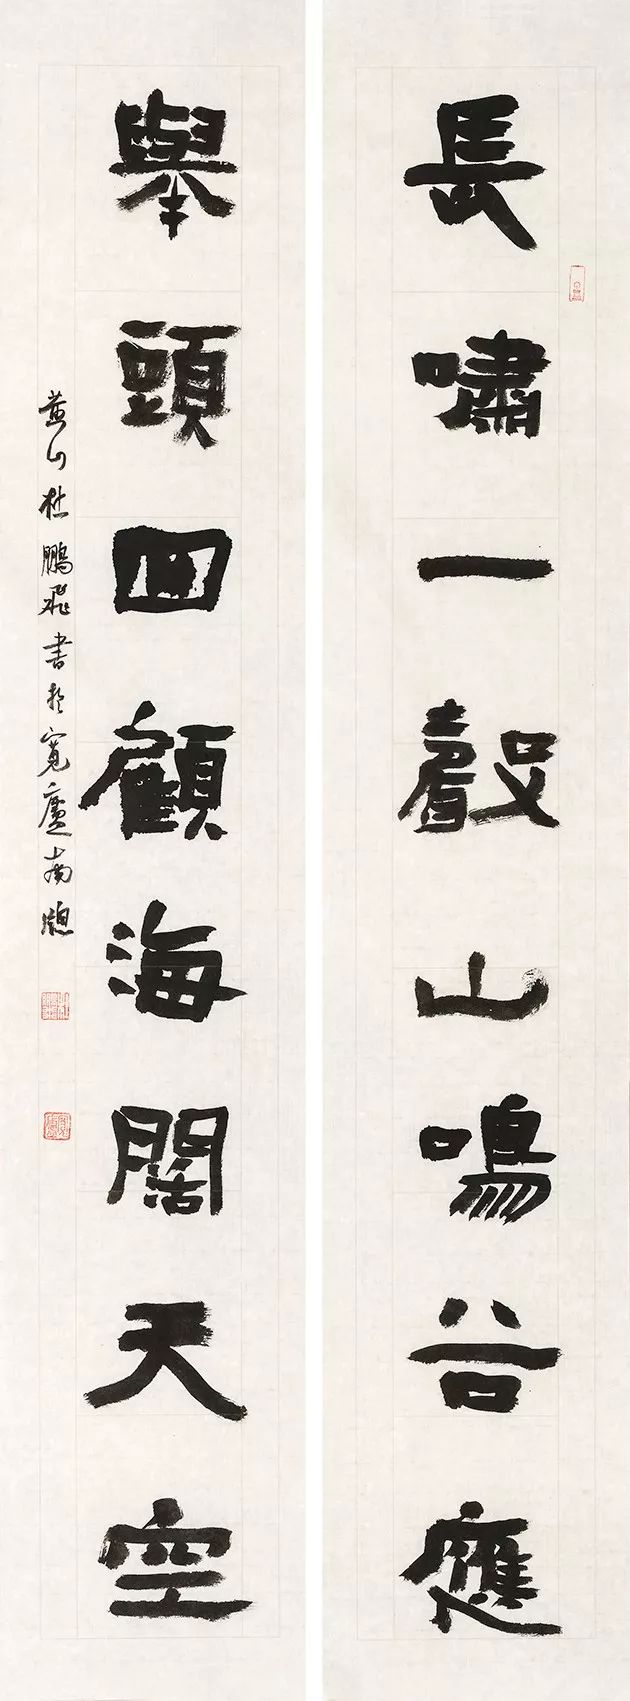 長嘯一聲山鳴谷應
舉頭四顧海闊天空
黄山杜鵬飛書於寬廬南窗